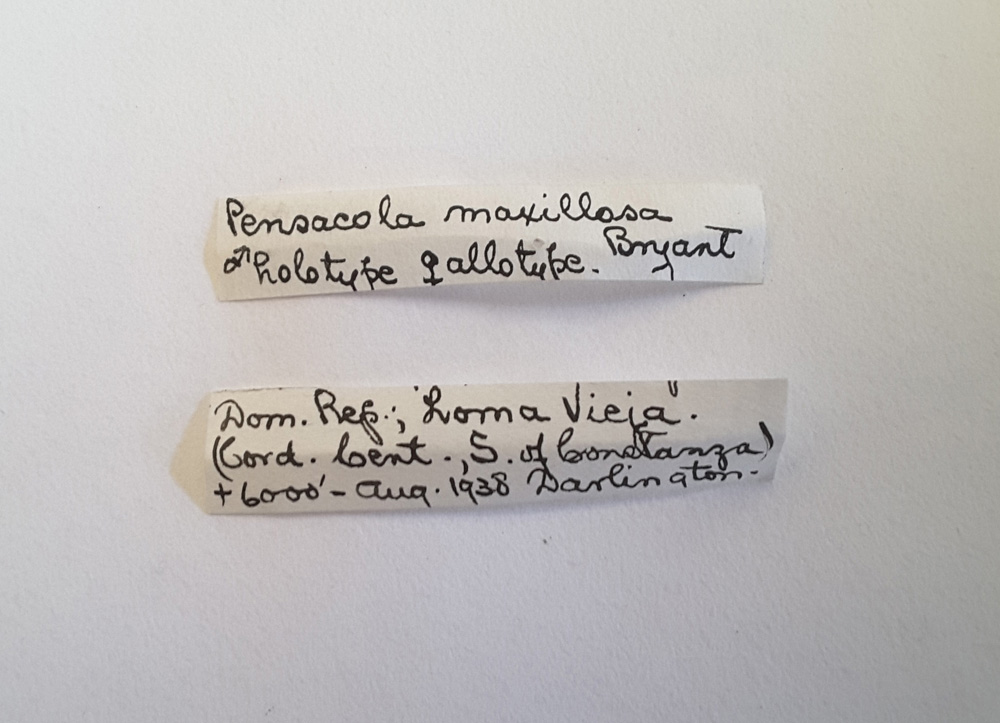 Pensacola maxillosa
♂ holotype ♀ allotype. Bryant
Dom. Rep.; "Loma Vieja".
(Cord. Cent., S. of Constanza)
+ 6000' - Aug. 1938 Darlington.